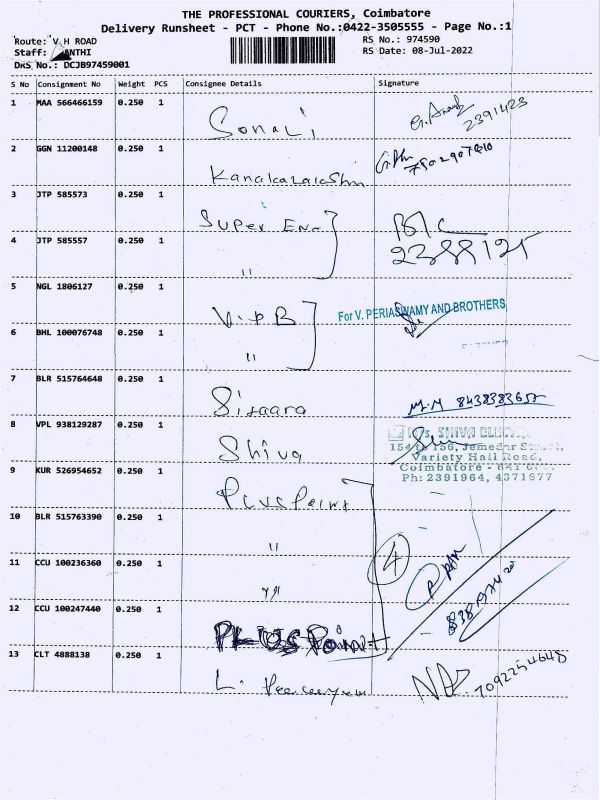 THE PROFESSIONAL COURIERS, Coimbatore
Delivery Runsheet - PCT - Phone No.:0422-3505555 - Page No.:1
Route: V H ROAD
RS No.: 974590
Staff: ANTHI
RS Date: 08-Jul-2022
DRS No.: DCJB97459001
S No Consignment No Weight PCS Consignee Details Signature
1 MAA 566466159 0.250 1 Sonali G. Anand 2391423
2 GGN 11200148 0.250 1
3 JTP 585573 0.250 1 Super En-
4 JTP 585557 0.250 1 " 2388125
5 NGL 1806127 0.250 1 V.P B For V. PERIASWAMY AND BROTHERS
6 BHL 100076748 0.250 1 "
7 BLR 515764648 0.250 1 Sitaara M.M 8438383657
8 VPL 938129287 0.250 1 Shiva
M/s. SHIVA
154 156, Jemedar
Variety Hall Road,
Coimbatore - 641
Ph: 2391964, 4371677
9 KUR 526954652 0.250 1 Plus Point
10 BLR 515763390 0.250 1 "
4
11 CCU 100236360 0.250 1 "
12 CCU 100247440 0.250 1 PLUS Point
13 CLT 4888138 0.250 1 L. 7092254648